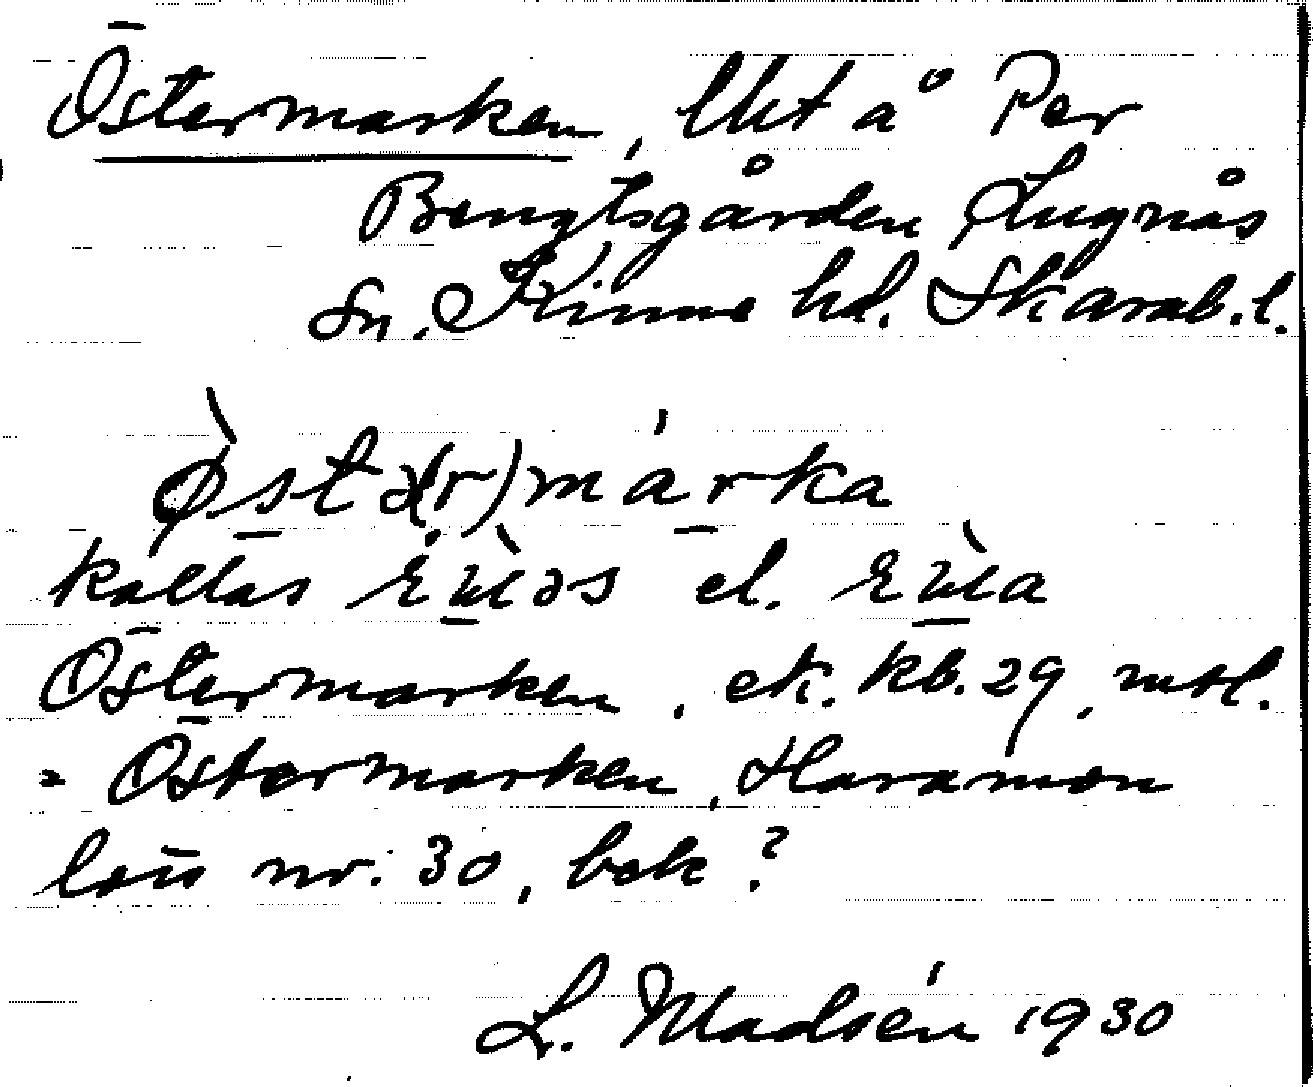 Östermarken, lht å Per
Bengtsgården Lugnås
Sn. Kinne hd. Skarab. l.
ø̀stə(r)marka
kallas el.
Östermarken, ek. kb. 29, mtl.
= Östermarken,
nr. 30, bok?
L. Madsén 1930